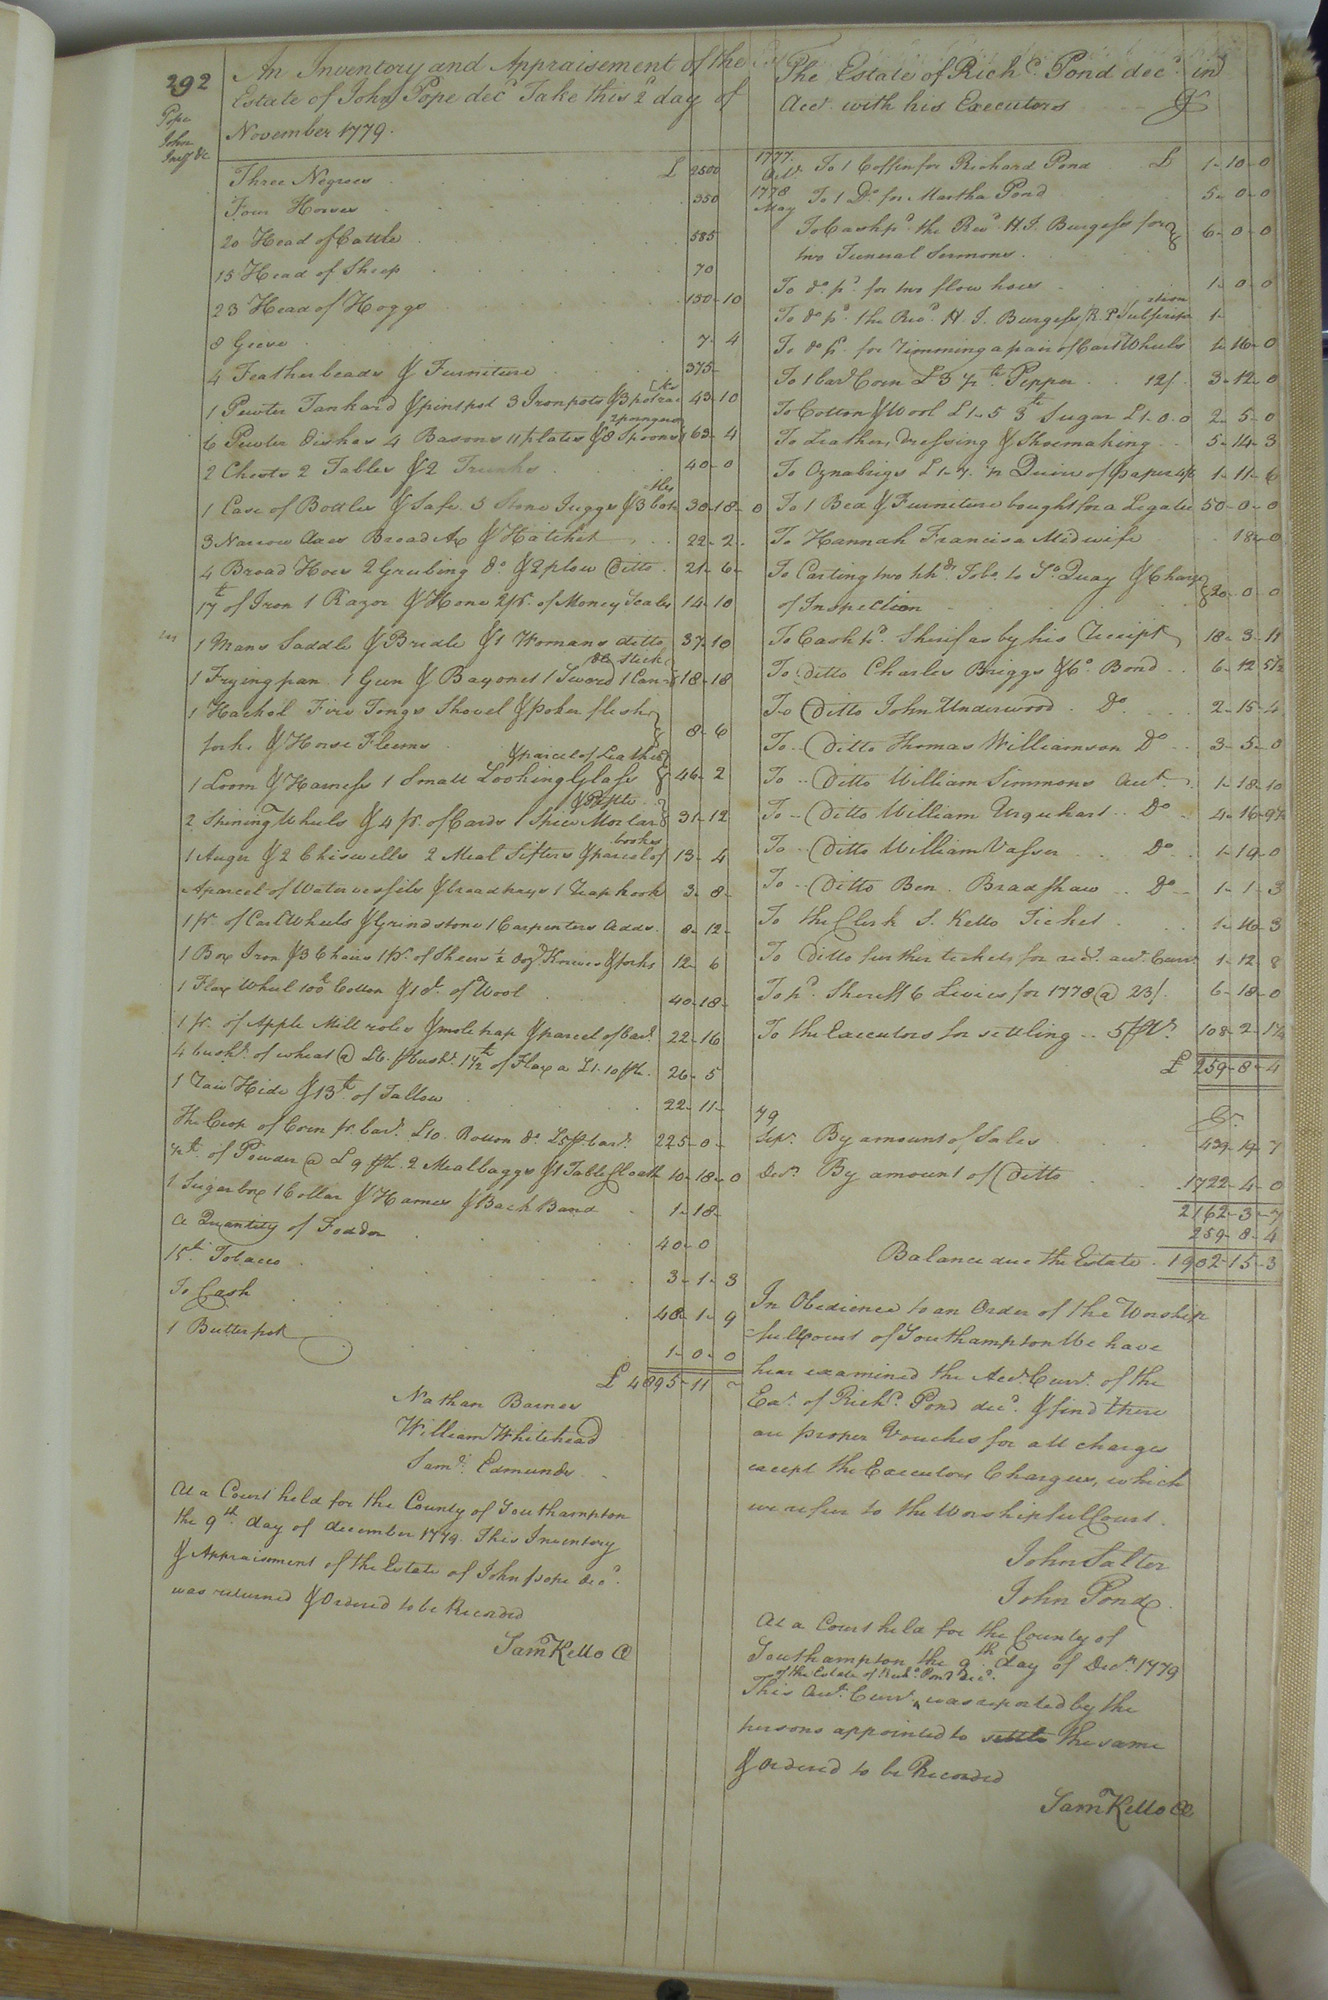 292
Pope
John
Invy &c
An Inventory and Appraisement of the
Estate of John Pope decd Take this 2d day of
November 1779.
Three Negroes . . £ 2500
Four Horses . 350
20 Head of Cattle . 585
15 Head of Sheep . 70
23 Head of Hoggs . 130-10
8 Geese . 7-4
4 Featherbeads & Furniture . 375-
1 Pewter Tankard & pintpot 3 Iron pots & 3 potrac 43-10
6 Pewter dishes 4 Basons 11 plates & 8 Spoons 63-4
2 Chests 2 Tables & 2 Trunks . 40-0
1 Case of Bottles & Safe 3 Stone Juggs & 3 bot 30-18-0
3 Narrow Axes Broad Ax & Hatchet . 22-2-
4 Broad Hoes 2 Grubing do & 2 plow Ditto . 21-6-
17lb of Iron 1 Razor & Hone 2 pr. of Money Scales 14-10
1 Mans Saddle & Bridle & 1 Womans ditto 37-10
1 Fryingpan 1 Gun & Bayonet 1 Sword 1 Can= Stick 18-18
1 Hackel Fire Tongs Shovel & poker flesh
fork & Horse Fleems . 8-6
& parcel of Leather
1 Loom & Harness 1 Small Looking Glass 46-2
& Pestle
2 Spining Wheels & 4 pr. of Cards 1 Spice Mortar 31-12
books
1 Auger & 2 Chiswells 2 Meal Sifters & parcel of 13-4
Aparcel of Water vessils & breadtrays 1 Reaphook 3-8-
1 pr. of Cart Wheels & Grindstone 1 Carpenters Adds. 8-12-
1 Box Iron & 3 Chairs 1 pr. of Sheers ½ Dozn Knives & forks 12-6
1 Flax Wheel 100lb Cotton & 1 do. of Wool . 40-18-
1 pr. of Apple Mill roles & mole trap & parcel of Car. 22-16
4 bushs. of wheat @ £6. pbush. 1½lb of Flax a £1.10 plb. 26-5
1 Raw Hide & 13lb of Tallow . 22-11-
The Crop of Corn pr. bar. £10. Rotton do. £5 pbar. 225-0-
½lb. of Powder @ £9 plb. 2 Mealbaggs & 1 Table Cloath 10-18-0
1 Sugarbox 1 Collar & Hames & Back Band . 1-18-
a Quantity of Fodder . 40-0
15lb Tobacco . 3-1-3
To Cash . 48-1-9
1 Butterpot . 1-0-0
£ 4895-11-
Nathan Barnes
William Whitehead
Saml. Edmunds
At a Court held for the County of Southampton
the 9th. day of december 1779. This Inventory
& Appraisement of the Estate of John pope decd.
was returned & Ordered to be Recorded
Saml Kello Cl
The Estate of Richd. Pond decd. in
Acct. with his Executors Dr
1777.
Octr. To 1 Coffin for Richard Pond £ 1-10-0
1778
May To 1 Do. for Martha Pond 5-0-0
To Cash pd. the Revd. H.J. Burgess for 6-0-0
two Funeral Sermons.
To do. pd. for two plow hoes . 1-0-0
To do. pd. the Revd. H. J. Burgess 1-
To do. pd. for Timming a pair of Cart Wheels 1-16-0
To 1 barl Corn £3 ½lb Pepper 12/. 3-12-0
To Cotton & Wool £1-5 3lb Sugar £1-0-0 2-5-0
To Leather, dressing & Shoemaking 5-14-3
To Oznabrigs £1-7. ½ Quire of paper 4/6 1-11-6
To 1 Bed & Furniture bought for a Legatee 50-0-0
To Hannah Francis a Midwife 18-0
To Carting two hhds. Tobo. to So. Quay & Charge
of Inspection . 20-0-0
To Cash pd. Sherif as by his Receipt 18-3-11
To ditto Charles Briggs & Co. Bond 6-12-5½
To Ditto John Underwood Do 2-15-4
To Ditto Thomas Williamson Do 3-5-0
To Ditto William Simmons Acct. 1-18-10
To Ditto William Urquhart Do 4-16-9½
To Ditto William Vasser Do 1-19-0
To Ditto Ben. Bradshaw Do 1-1-3
To the Clerk S. Kello Ticket . 1-16-3
To Ditto further tickets for recg. acct. Curr. 1-12-8
To pd. Sheriff 6 Levies for 1778 @ 23/. 6-18-0
To the Executors for settling 5 pCt. 108-2-1½
£ 259-8-4
79 Cr.
Sepr. By amount of Sales 439-19-7
Decr. By amount of Ditto 1722-4-0
2162-3-7
259-8-4
Balance due the Estate 1902-15-3
In Obedience to an Order of the Worship
=full Court of Southampton We have
hear examined the Acct. Curr. of the
Exr. of Richd. Pond decd. & find there
are proper Vouches for all charges
except the Executors Charges, which
we refer to the Worshipfull Court.
John Salter
John Pond
At a Court held for the County of
Southampton the 9th. day of Decr. 1779
of the Estate of Richd. Pond decd.
This Acct. Curr. ^ was reported by the
persons appointed to settle the same
& Ordered to be Recorded
Saml Kello Cl